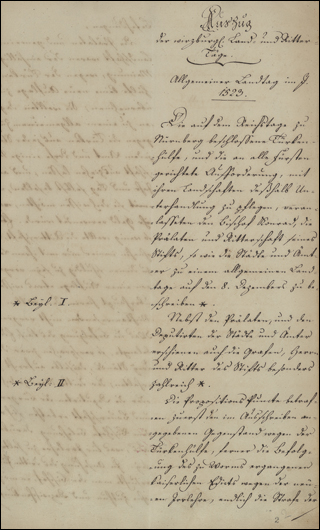 Auszug
der wirzburgl. Land und Ritter
Tage.
Allgemeiner Landtag im J.
1523.
Die auf dem Reichstage zu
Nürnberg beschlossene Türken-
hülfe, und die an alle Fürsten
gerichtete Aufforderung, mit
ihren Landschaften deßhalb Un-
terhandlung zu pflegen, veran-
laßten den Bischof Konrad, die
Prälaten und Ritterschaft seines
Stifts, so wie die Städte und Ämt-
er zu einem allgemeinen Land-
tage auf den 8. Dezember zu be
schreiben *.
* Beyl. I
Nebst den Prälaten, und den
Deputirten der Städte und Ämter
erschienen auch die Grafen, Herrn
und Ritter des Stifts besonders
zahlreich *.
* Beyl. II
Die Propositions Puncte betraf-
en zuerst den im Ausschreiben an-
gegebenen Gegenstand wegen der
Türkenhülfe, ferner die Befolg-
ung des zu Worms ergangenen
kaiserlichen Edicts wegen der neu-
en Irrlehre, endlich die Strafe der